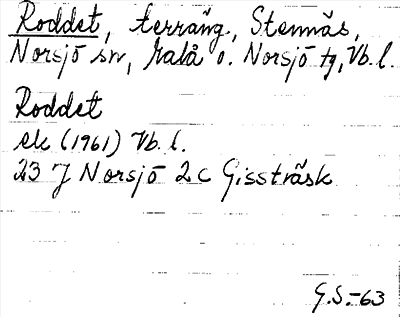 Roddet, terräng, Stennäs,
Norsjö sn, Malå o. Norsjö tg, Vb. l.
Roddet
ek (1961) Vb. l.
23 J Norsjö 2 c Gissträsk
G.S.-63